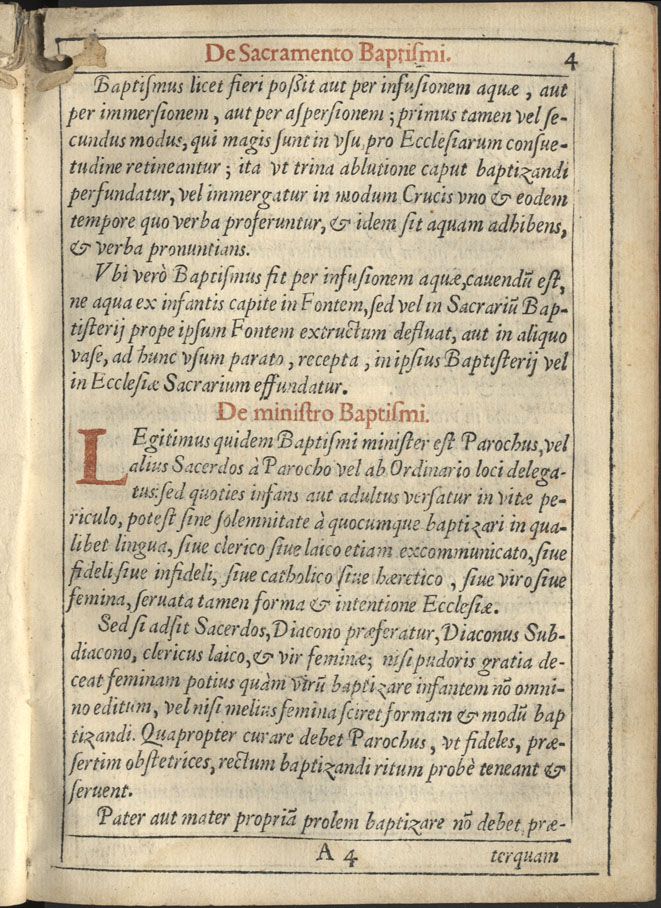 De Sacramento Baptiſmi.
4
Baptiſmus licet fieri poſſit aut per infuſionem aquæ , aut
per immerſionem , aut per aſperſionem ; primus tamen vel ſe-
cundus modus, qui magis ſunt in vſu, pro Eccleſiarum conſue-
tudine retineantur ; ita vt trina ablutione caput baptizandi
perfundatur, vel immergatur in modum Crucis vno & eodem
tempore quo verba proferuntur, & idem ſit aquam adhibens,
& verba pronuntians.
Vbi verò Baptiſmus fit per infuſionem aquæ,cauendũ eſt,
ne aqua ex infantis capite in Fontem, ſed vel in Sacrariũ Bap-
tiſterij prope ipſum Fontem extructum defluat, aut in aliquo
vaſe, ad hunc vſum parato , recepta , in ipſius Baptiſterij vel
in Eccleſiæ Sacrarium effundatur.
De miniſtro Baptiſmi.
LEgitimus quidem Baptiſmi miniſter eſt Parochus, vel
alius Sacerdos à Parocho vel ab Ordinario loci delega-
tus: ſed quoties infans aut adultus verſatur in vitæ pe-
riculo, poteſt ſine ſolemnitate à quocumque baptizari in qua-
libet lingua, ſiue clerico ſiue laico etiam excommunicato, ſiue
fideli ſiue infideli, ſiue catholico ſiue hæretico , ſiue viro ſiue
femina, ſeruata tamen forma & intentione Eccleſiæ.
Sed ſi adſit Sacerdos, Diacono præferatur, Diaconus Sub-
diacono, clericus laico, & vir feminæ; niſi pudoris gratia de-
ceat feminam potius quàm virũ baptizare infantem nõ omni-
no editum, vel niſi melius femina ſciret formam & modũ bap
tizandi. Quapropter curare debet Parochus , vt fideles, præ-
ſertim obſtetrices, rectum baptizandi ritum probè teneant &
ſeruent.
Pater aut mater propriã prolem baptizare nõ debet, præ-
A 4
terquam